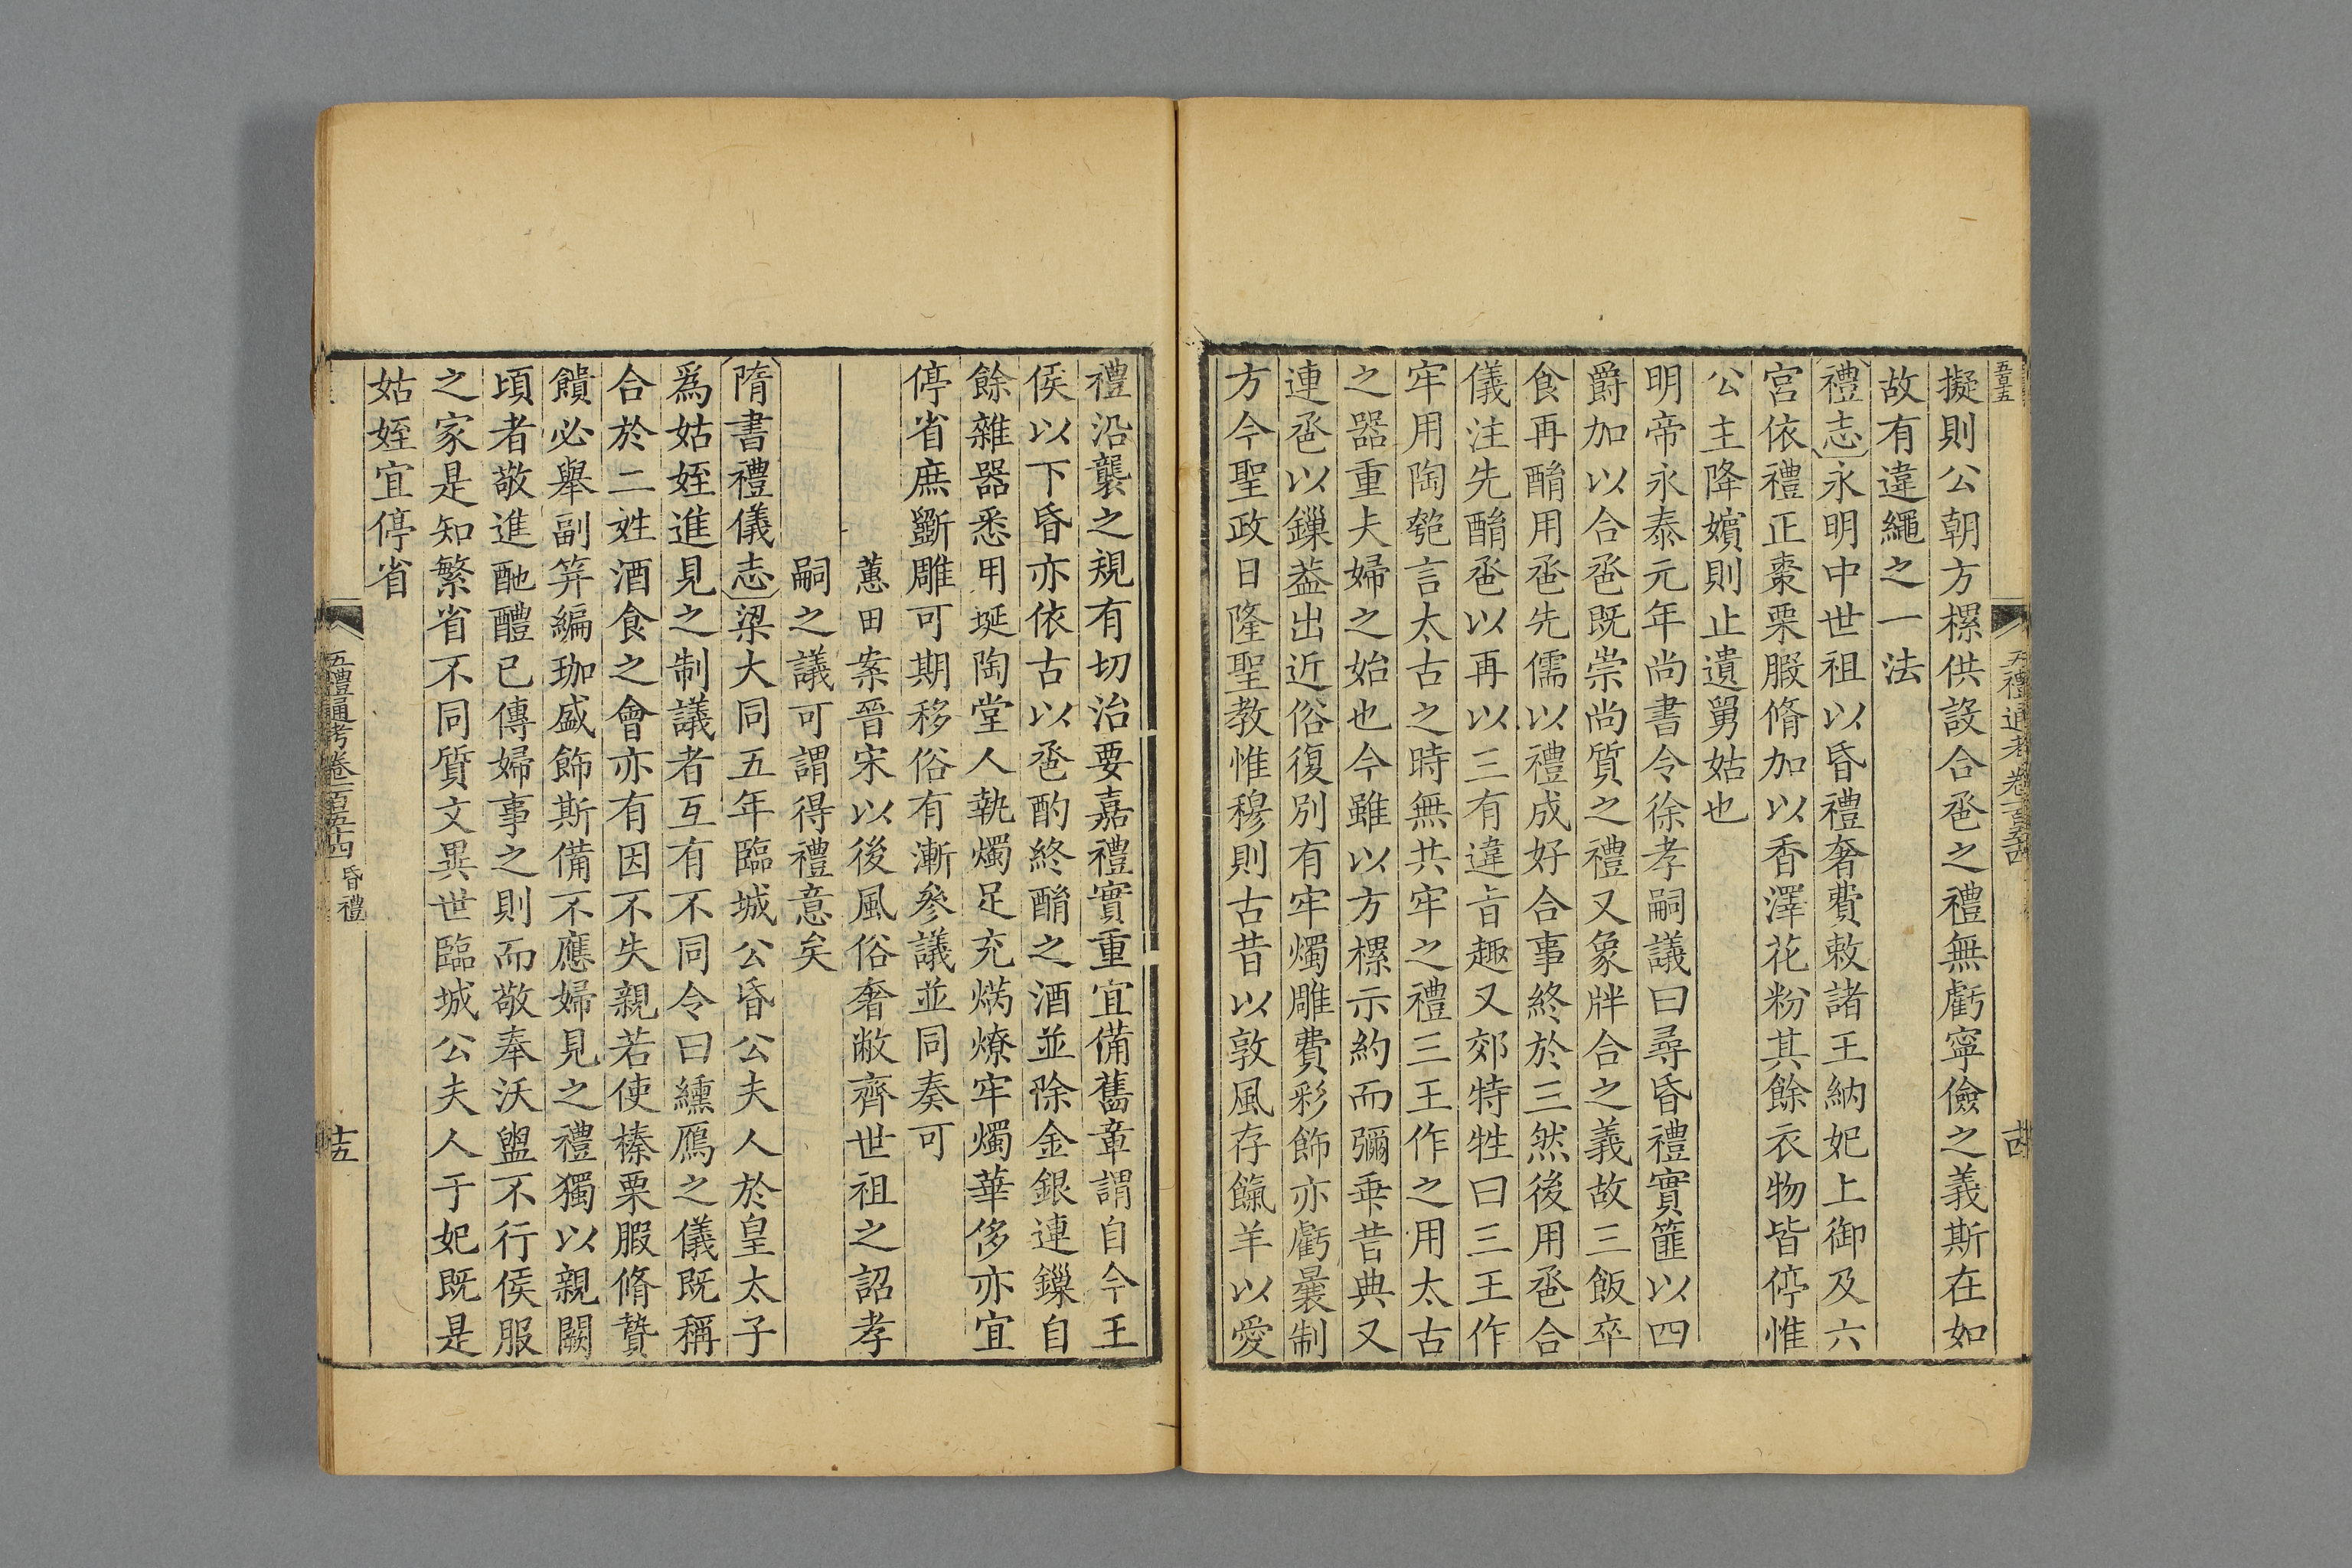 擬則公朝方樏供設合卺之禮無虧寧儉之義斯在如
故有違繩之一法
禮志永明中世祖以昏禮奢費敕諸王納妃上御及六
宮依禮正棗栗腶脩加以香澤花粉其餘衣物皆停惟
公主降嬪則止遺舅姑也
明帝永泰元年尚書令徐孝嗣議曰尋昏禮實篚以四
爵加以合卺既崇尚質之禮又象牉合之義故三飯卒
食再酳用卺先儒以禮成好合事終於三然後用卺合
儀注先酳卺以再以三有違旨趣又郊特牲曰三王作
牢用陶匏言太古之時無共牢之禮三王作之用太古
之器重夫婦之始也今雖以方樏示約而彌乖昔典又
連卺以鏁葢出近俗復別有牢燭雕費彩飾亦虧曩制
方今聖政日隆聖教惟穆則古昔以敦風存餼羊以愛
五禮通考卷
禮沿襲之規有切治要嘉禮實重宜備舊章謂自今王
侯以下昏亦依古以卺酌終酳之酒並除金銀連鏁自
餘雜器悉用埏陶堂人執燭足充爇燎牢燭華侈亦宜
停省庶斵雕可期移俗有漸參議並同奏可
蕙田案晉宋以後風俗奢敝齊世祖之詔孝
嗣之議可謂得禮意矣
隋書禮儀志梁大同五年臨城公昏公夫人於皇太子
爲姑姪進見之制議者互有不同令曰纁鴈之儀既稱
合於二姓酒食之會亦有因不失親若使榛栗腶脩贄
饋必舉副笄編珈盛飾斯備不應婦見之禮獨以親闕
頃者敬進酏醴已傳婦事之則而敬奉沃盥不行侯服
之家是知繁省不同質文異世臨城公夫人于妃既是
姑姪宜停省
五禮通考卷一百五十四 昏禮
十五